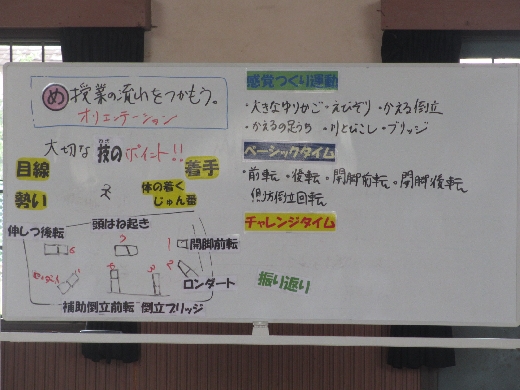 め 授業の流れをつかもう。
オリエンテーション
大切な技のポイント!!
目線
着手
勢い
体の着く
じゅん番
伸しつ後転
頭はね起き
開脚前転
ロンダート
補助倒立前転
倒立ブリッジ
感覚つくり運動
・大きなゆりかご・えびぞり・かえる倒立
・かえるの足うち・川とびこし・ブリッジ
ベーシックタイム
・前転・後転・開脚前転・開脚後転
側方倒立回転
チャレンジタイム
振り返り